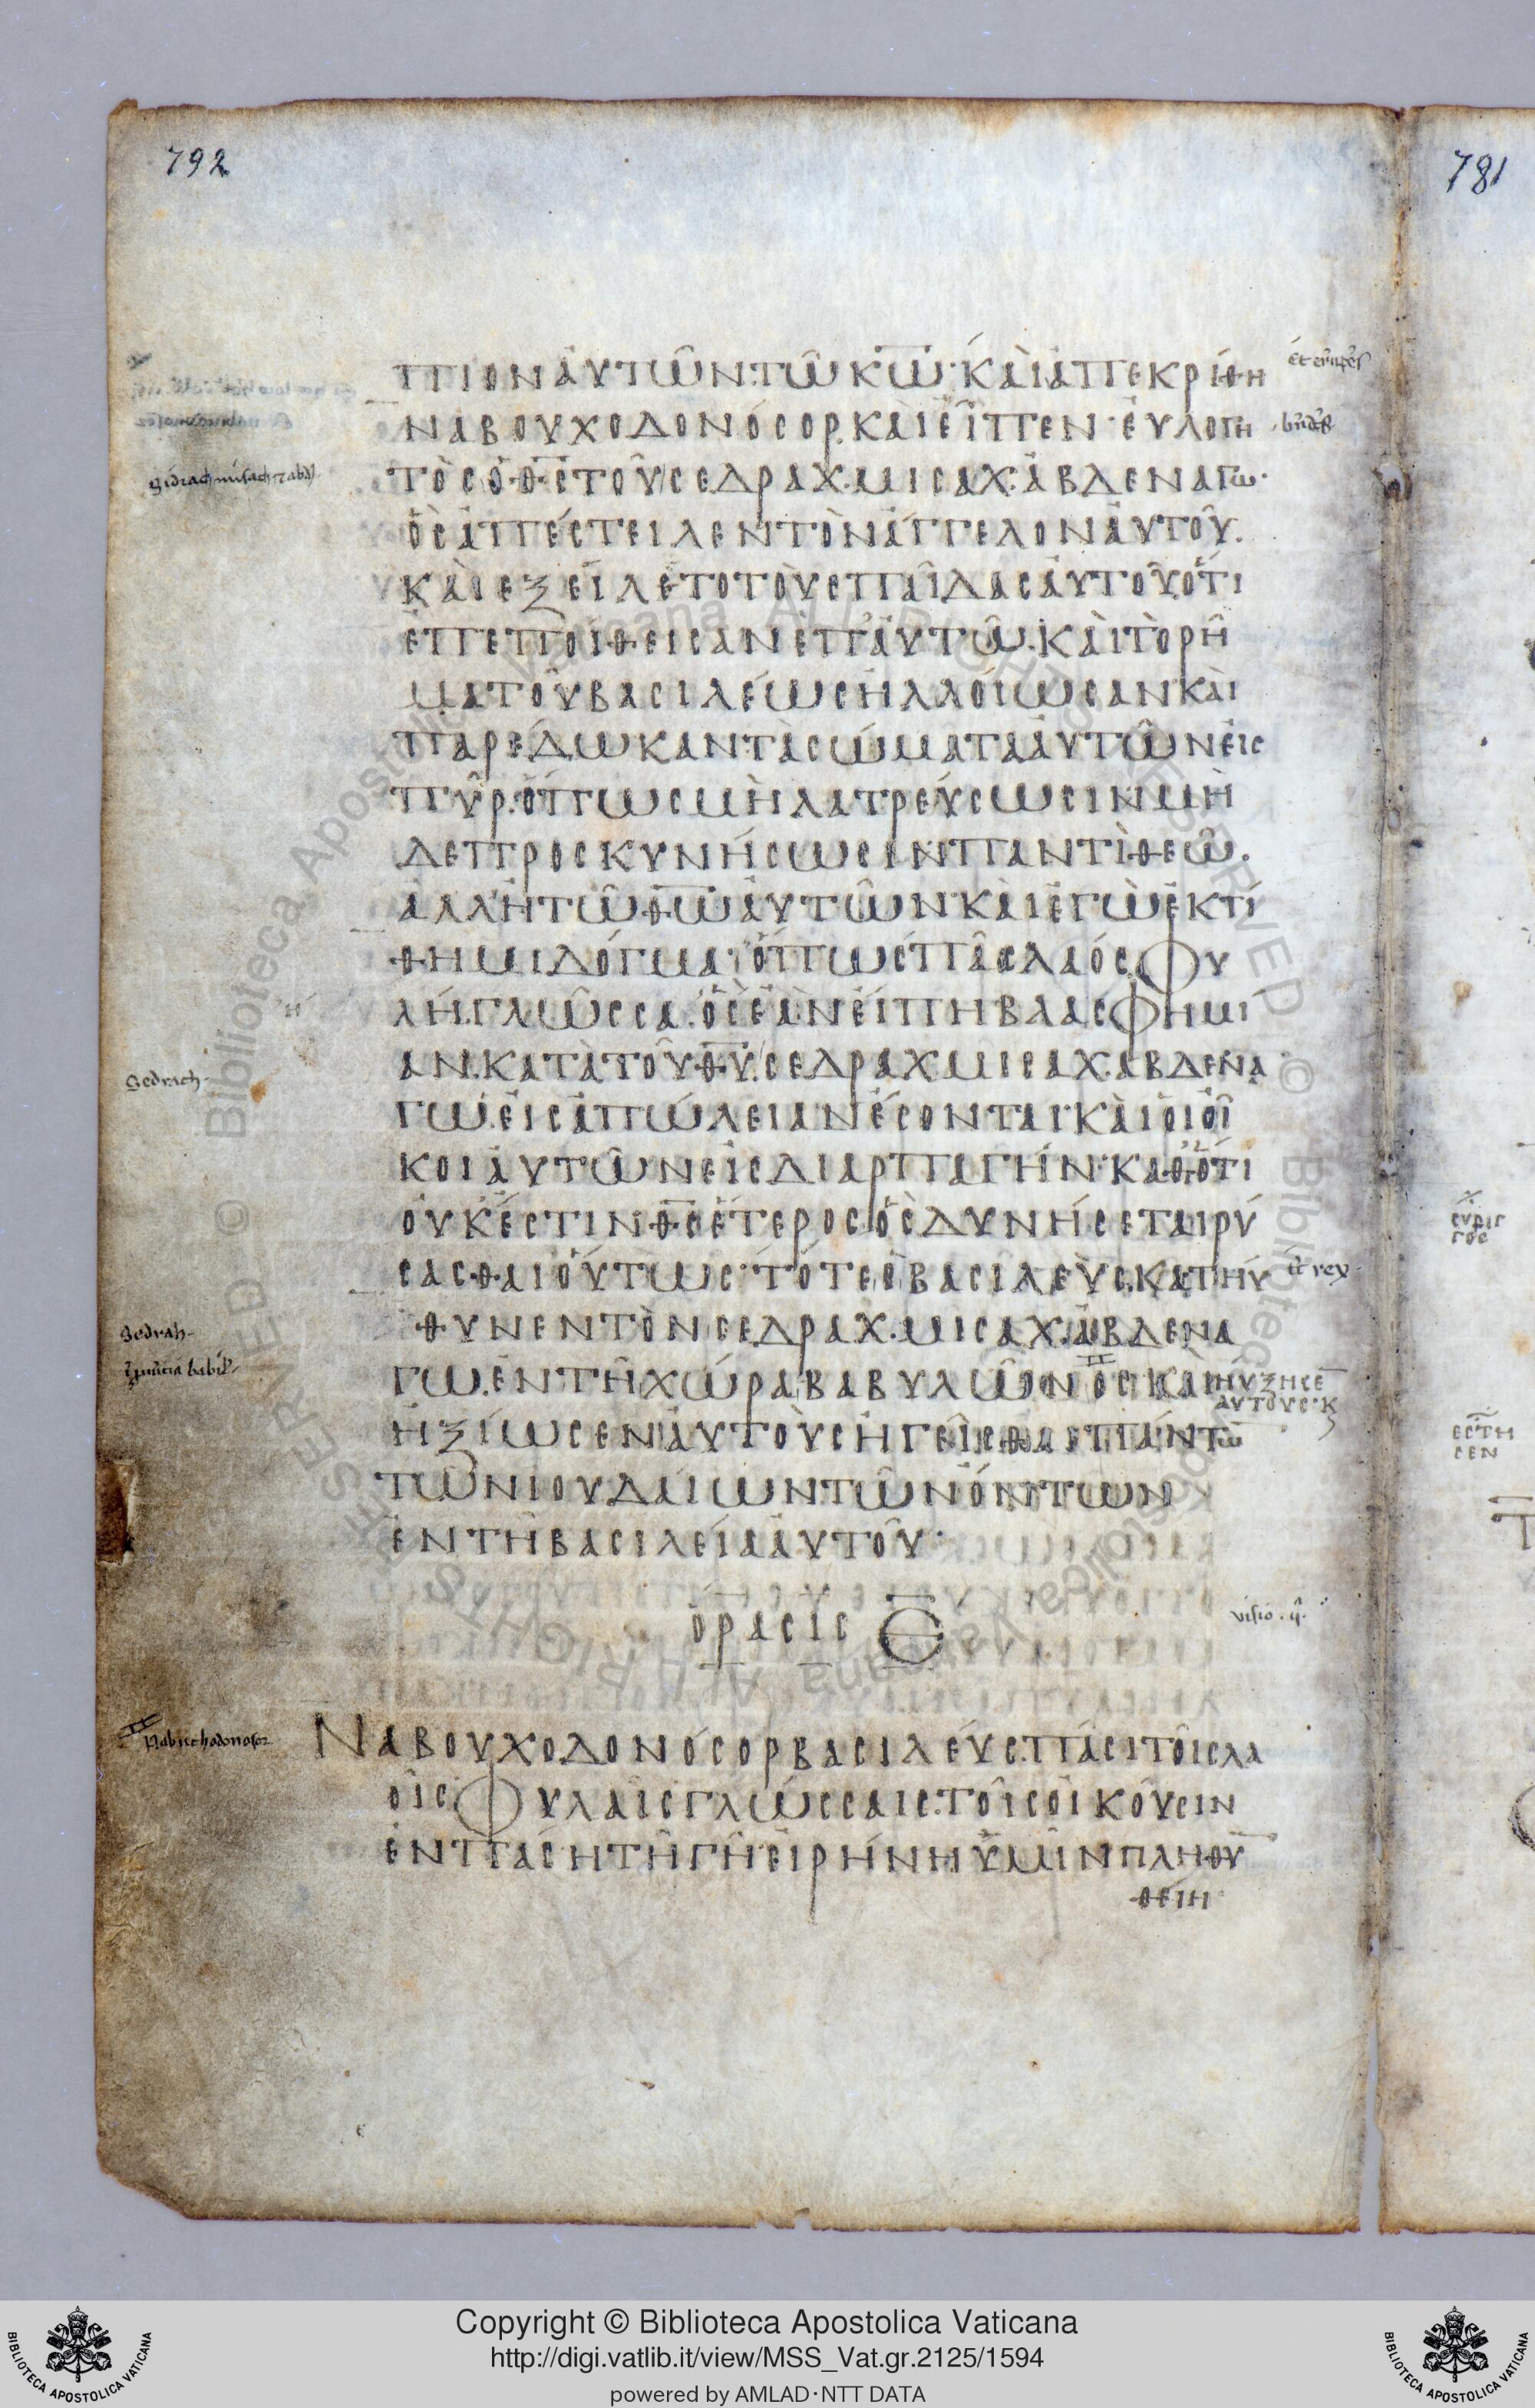 792
781
ΠΙΟΝ ΑΥΤΩΝ ΤΩ ΚΩ· ΚΑΙ ΑΠΕΚΡΙΘΗ
ΝΑΒΟΥΧΟΔΟΝΟΣΟΡ ΚΑΙ ΕΙΠΕΝ· ΕΥΛΟΓΗ
ΤΟΣ Ο ΘΣ ΤΟΥ ΣΕΔΡΑΧ· ΜΙΣΑΧ· ΑΒΔΕΝΑΓΩ·
ΟΣ ΑΠΕΣΤΕΙΛΕΝ ΤΟΝ ΑΓΓΕΛΟΝ ΑΥΤΟΥ.
ΚΑΙ ΕΞΕΙΛΕΤΟ ΤΟΥΣ ΠΑΙΔΑΣ ΑΥΤΟΥ ΟΤΙ
ΕΠΕΠΟΙΘΕΙΣΑΝ ΕΠ ΑΥΤΩ. ΚΑΙ ΤΟ ΡΗ
ΜΑ ΤΟΥ ΒΑΣΙΛΕΩΣ ΗΛΛΟΙΩΣΑΝ ΚΑΙ
ΠΑΡΕΔΩΚΑΝ ΤΑ ΣΩΜΑΤΑ ΑΥΤΩΝ ΕΙΣ
ΠΥΡ. ΟΠΩΣ ΜΗ ΛΑΤΡΕΥΣΩΣΙΝ ΜΗ
ΔΕ ΠΡΟΣΚΥΝΗΣΩΣΙΝ ΠΑΝΤΙ ΘΕΩ.
ΑΛΛ Η ΤΩ ΘΩ ΑΥΤΩΝ· ΚΑΙ ΕΓΩ ΕΚΤΙ
ΘΗΜΙ ΔΟΓΜΑ· ΟΠΩΣ ΠΑΣ ΛΑΟΣ ΦΥ
ΛΗ. ΓΛΩΣΣΑ. ΟΣ ΕΑΝ ΕΙΠΗ ΒΛΑΣΦΗΜΙ
ΑΝ. ΚΑΤΑ ΤΟΥ ΘΥ. ΣΕΔΡΑΧ ΜΙΣΑΧ. ΑΒΔΕΝΑ
ΓΩ. ΕΙΣ ΑΠΩΛΕΙΑΝ ΕΣΟΝΤΑΙ· ΚΑΙ ΟΙ ΟΙ
ΚΟΙ ΑΥΤΩΝ ΕΙΣ ΔΙΑΡΠΑΓΗΝ· ΚΑΘΟΤΙ
ΟΥΚ ΕΣΤΙΝ ΘΣ ΕΤΕΡΟΣ ΟΣ ΔΥΝΗΣΕΤΑΙ ΡΥ
ΣΑΣΘΑΙ ΟΥΤΩΣ· ΤΟΤΕ Ο ΒΑΣΙΛΕΥΣ. ΚΑΤΗΥ
ΘΥΝΕΝ ΤΟΝ ΣΕΔΡΑΧ. ΜΙΣΑΧ. ΑΒΔΕΝΑ
ΓΩ. ΕΝ ΤΗ ΧΩΡΑ ΒΑΒΥΛΩΝΟΣ ΚΑΙ
ΗΥΞΗΣΕ
ΑΥΤΟΥΣ· Κ
ΗΞΙΩΣΕΝ ΑΥΤΟΥΣ ΗΓΕΙΣΘΑΙ ΠΑΝΤΩ
ΤΩΝ ΙΟΥΔΑΙΩΝ ΤΩΝ ΟΝΤΩΝ
ΕΝ ΤΗ ΒΑΣΙΛΕΙΑ ΑΥΤΟΥ·
ΟΡΑΣΙΣ Ε
ΝΑΒΟΥΧΟΔΟΝΟΣΟΡ ΒΑΣΙΛΕΥΣ. ΠΑΣΙ ΤΟΙΣ ΛΑ
ΟΙΣ ΦΥΛΑΙΣ ΓΛΩΣΣΑΙΣ. ΤΟΙΣ ΟΙΚΟΥΣΙΝ
ΕΝ ΠΑΣΗ ΤΗ ΓΗ ΕΙΡΗΝΗ ΥΜΙΝ ΠΛΗΘΥ
ΘΕΙΗ
Sedrach
Sedrah
Nabuchodonosor
ΕΣΤΗ
ΣΕΝ
Copyright © Biblioteca Apostolica Vaticana
http://digi.vatlib.it/view/MSS_Vat.gr.2125/1594
powered by AMLAD·NTT DATA
BIBLIOTECA APOSTOLICA VATICANA
BIBLIOTECA APOSTOLICA VATICANA